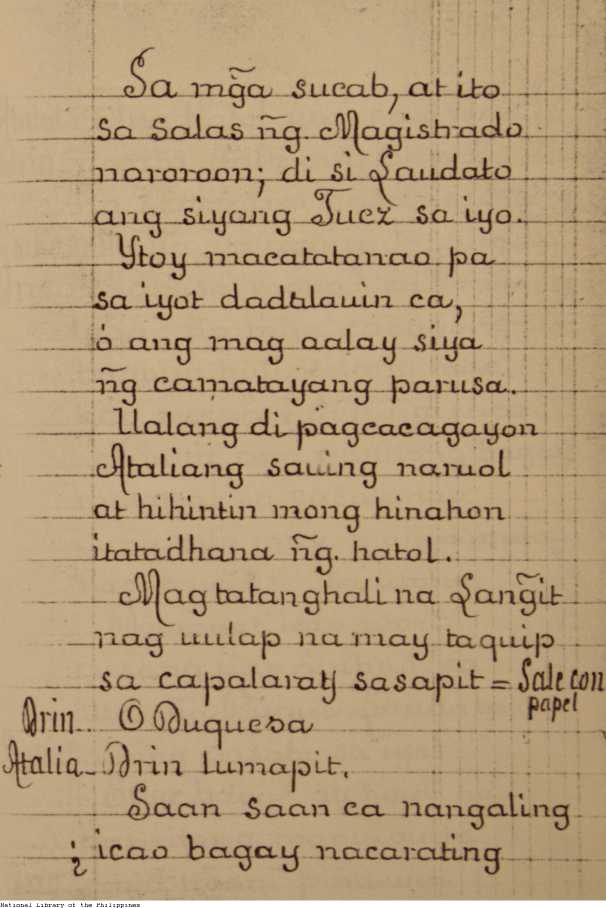 Sa mg̃a sucab, at ito
sa Salas ñg. Magistrado
naroroon; di si Laudato
ang siyang Juez sa iyo.
Ytoy macatatanao pa
sa iyot dadtalauin ca,
ó ang mag aalay siya
ñg camatayang parusa.
Ualang di pagcacagayon
Ataliang sauing naruol
at hihintin mong hinahon
itatadhana ñg. hatol.
Mag tatanghali na Lang̃it
nag uulap na may taquip
sa capalaraty sasapit = Sale con
papel
Brin O Duquesa
Atalia - Brin lumapit.
Saan saan ca nangaling
¿ icao bagay nacarating
National Library of the Philippines